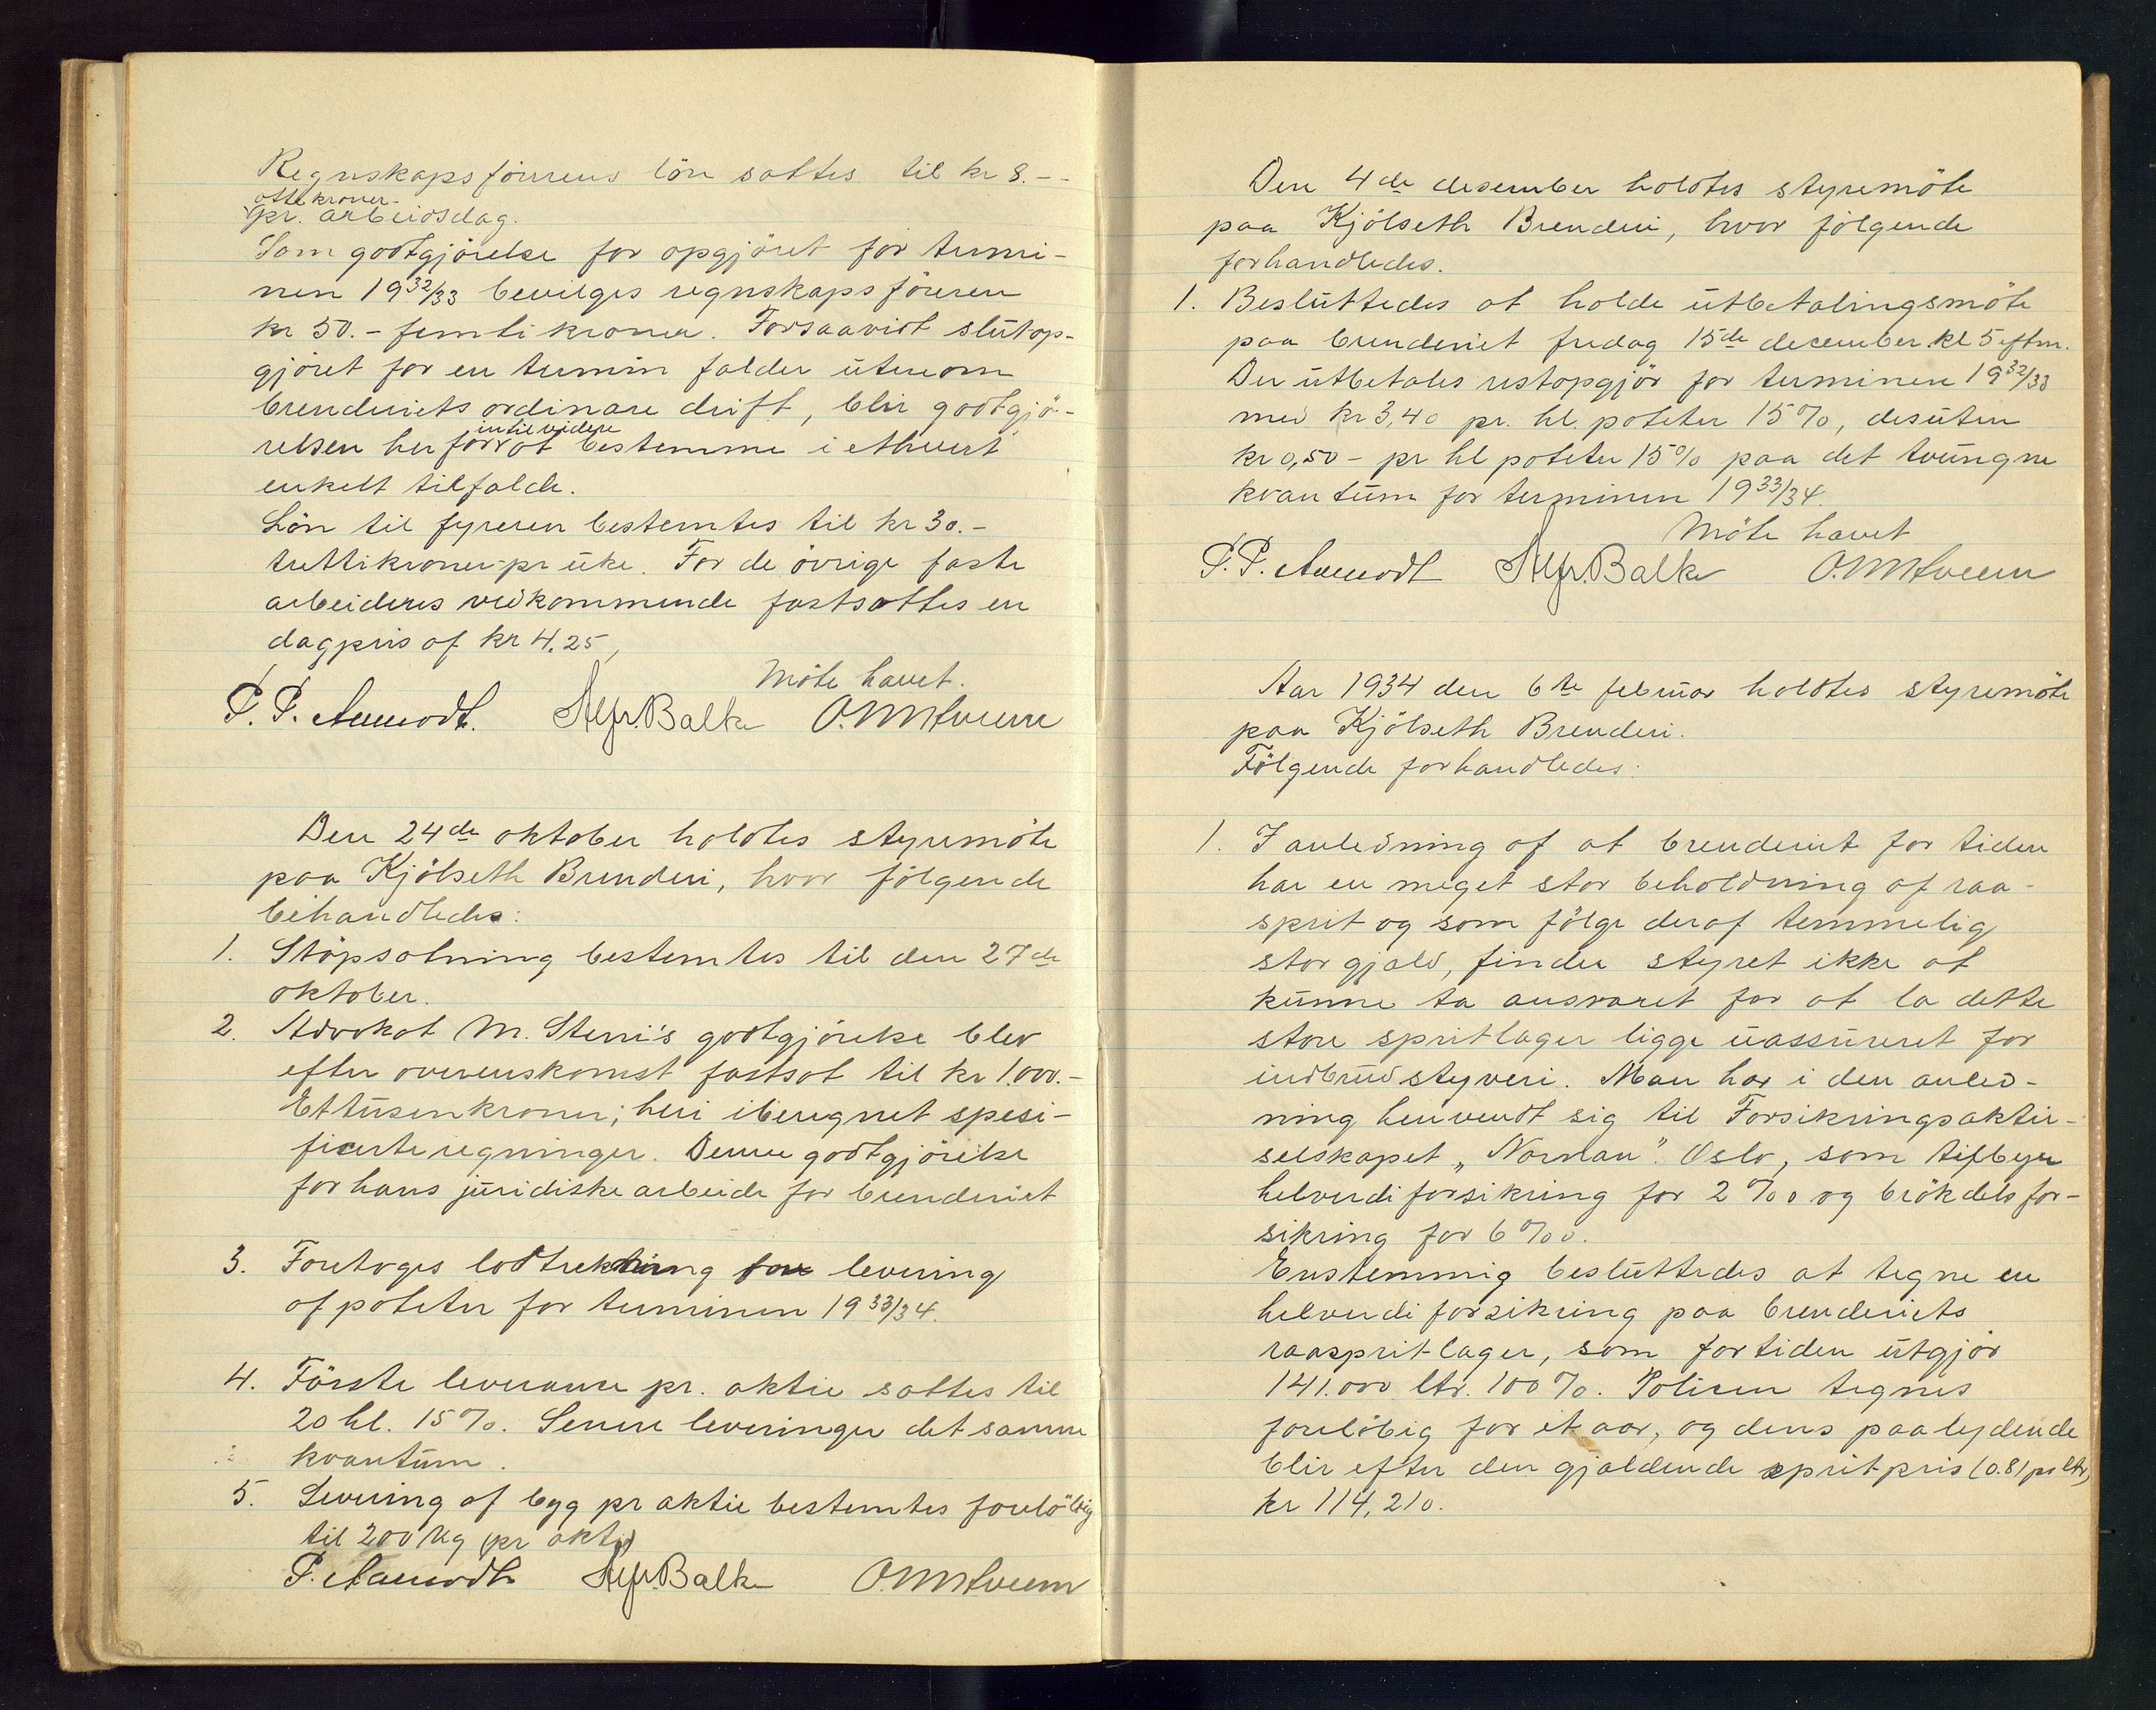 Regnskapsförerens lön sattes til kr 8.--
otte kroner-
pr. arbeidsdag.
Som godtgjörelse for opgjöret for termi-
nen 19 32/33 bevilges regnskapsföreren
kr 50.- femti kroner. Forsaavidt slutop-
gjöret for en termin falder utenom
brenderiets ordinære drift, blir godtgjö-
intil videre
relsen herfor at bestemme i ethvert
enkelt tilfælde.
Lön til fyreren bestemtes til kr 30.-
trettikroner pr uke. For de övrige faste
arbeideres vedkommende fastsattes en
dagpris af kr 4.25,
Möte hævet.
P. P. Aamodt. Alfr. Balke O. M. Hveem
Den 24de oktober holdtes styremöte
paa Kjölseth Brenderi, hvor fölgende
behandledes:
1. Stöpsætning bestemtes til den 27de
oktober.
2. Advokat M. Steni's godtgjörelse blev
efter overenskomst fastsat til kr 1000.-
Ettusenkroner; heri iberegnet spesi-
ficerte regninger. Denne godtgjörelse
for hans juridiske arbeide for brenderiet
3. Foretoges lodtrekning for levering
af poteter for terminen 19 33/34.
4. Förste leveranse pr. aktie sattes til
20 hl. 15%. Senere leveringer det samme
kvantum.
5. Levering af byg pr aktie bestemtes forelöbig
til 200 kg (pr akti)
P. Aamodt Alfr. Balke O. M. Hveem
Den 4de desember holdtes styremöte
paa Kjölseth Brenderi, hvor fölgende
forhandledes.
1. Besluttedes at holde utbetalingsmöte
paa brenderiet fredag 15de december kl 5 eftm.
Der utbetales restopgjör for terminen 19 32/33
med kr 3,40 pr. hl. poteter 15%, desuten
kr 0,50- pr hl poteter 15% paa det tvungne
kvantum for terminen 19 33/34.
Möte hævet
P. P. Aamodt Alfr. Balke O. M. Hveem
Aar 1934 den 6te februar holdtes styremöte
paa Kjölseth Brenderi.
Fölgende forhandledes:
1. I anledning af at brenderiet for tiden
har en meget stor beholdning af raa-
sprit og som fölge deraf temmelig
stor gjæld, finder styret ikke at
kunne ta ansvaret for at la dette
store spritlager ligge uassureret for
indbrudstyveri. Man har i den anled-
ning henvendt sig til Forsikringsaktie-
selskapet „Norman". Oslo, som tilbyr
helverdiforsikring for 2‰ og brökdelsfor-
sikring for 6‰.
Enstemmig besluttedes at tegne en
helverdiforsikring paa brenderiets
raaspritlager, som for tiden utgjör
141.000 ltr. 100%. Policen tegnes
forelöbig for et aar, og dens paalydende
blir efter den gjældende spritpris (0.81 pr ltr)
kr 114,210.